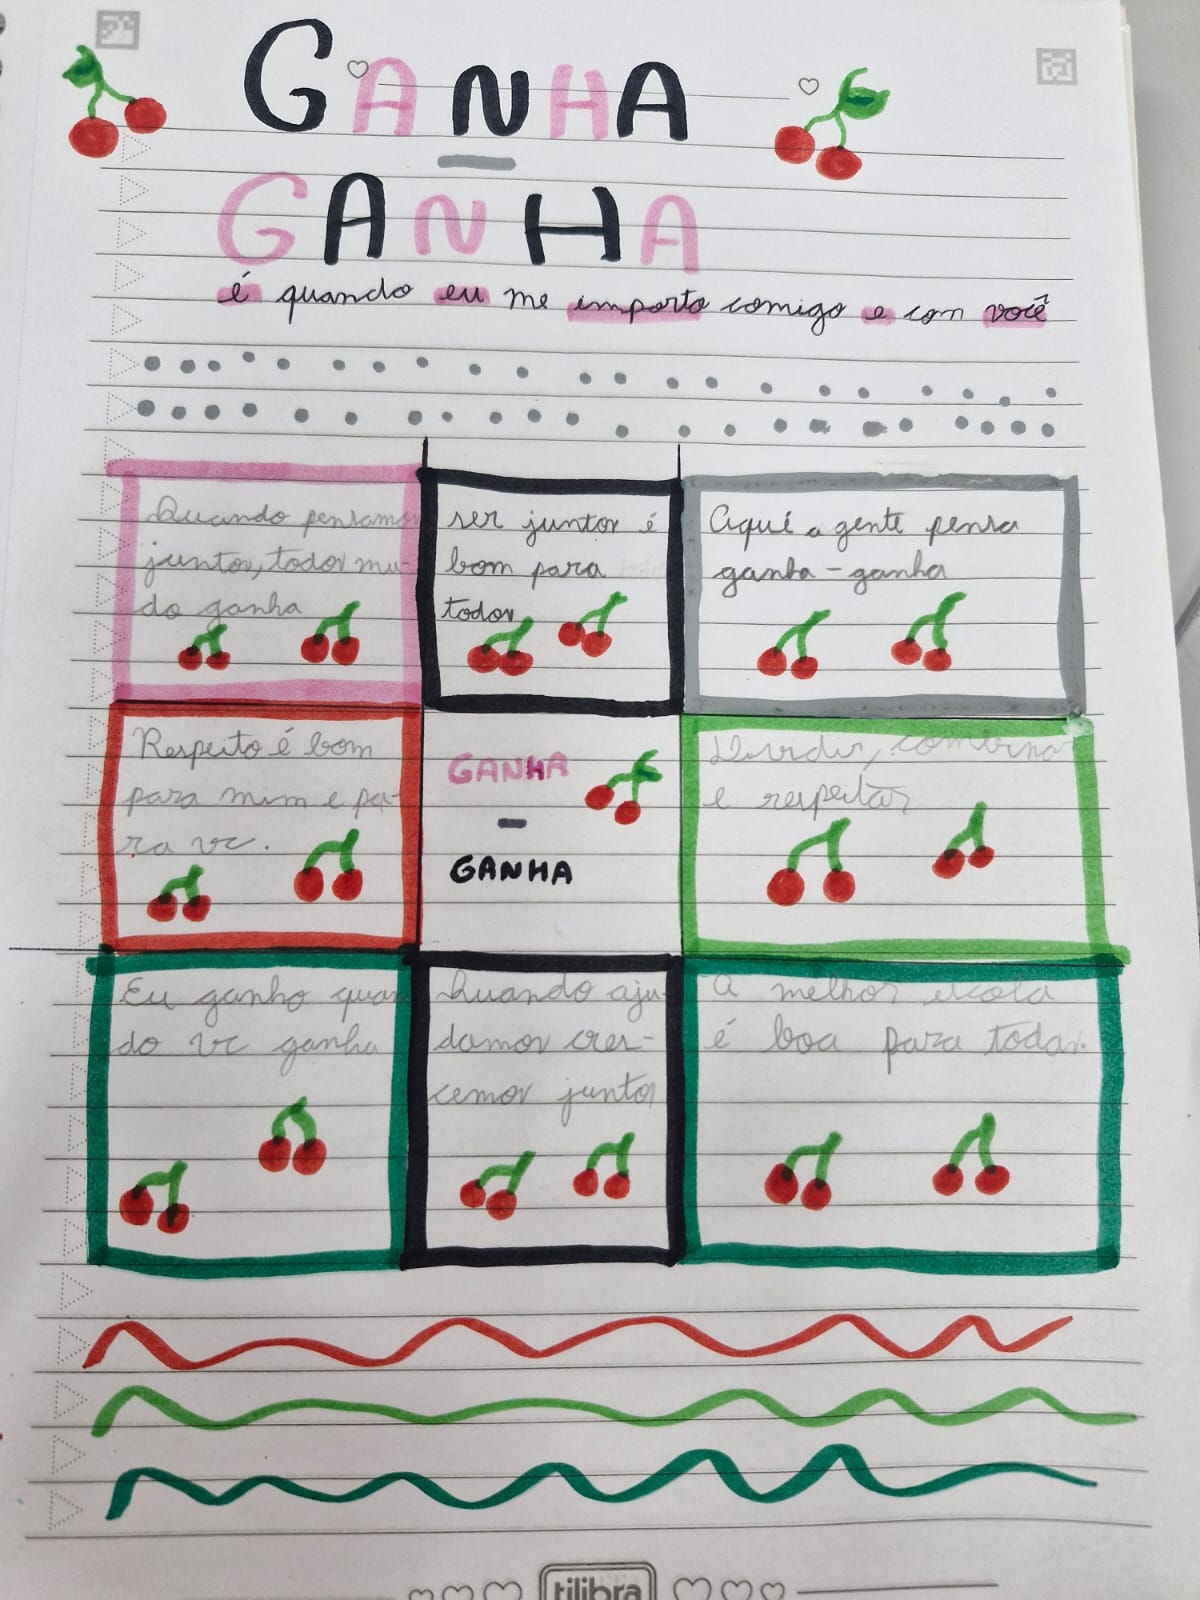 GANHA
-
GANHA
é quando eu me importo comigo e com você
Quando pensamos
juntos, todos mu-
do ganha
ser juntos é
bom para
todos
Aqui a gente pensa
ganha-ganha
Respeito é bom
para mim e pa-
ra vc.
GANHA
-
GANHA
Dividir, combinar
e respeitar
Eu ganho quan
do vc ganha
Quando aju-
damos cres-
cemos juntos
A melhor escola
é boa para todas.
tilibra